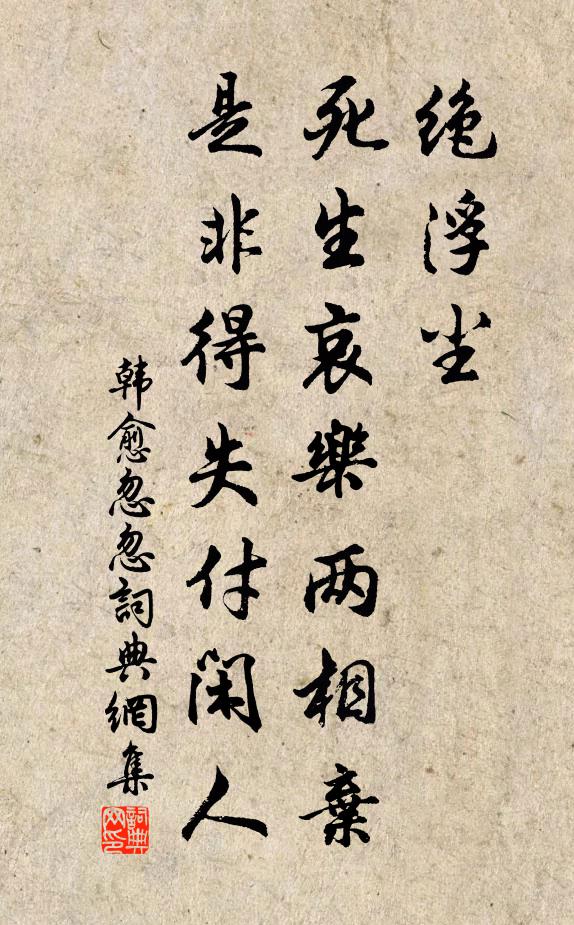 绝浮尘
死生哀樂两相棄
是非得失付閑人
韩愈忽忽詞典網集
詞典
网印